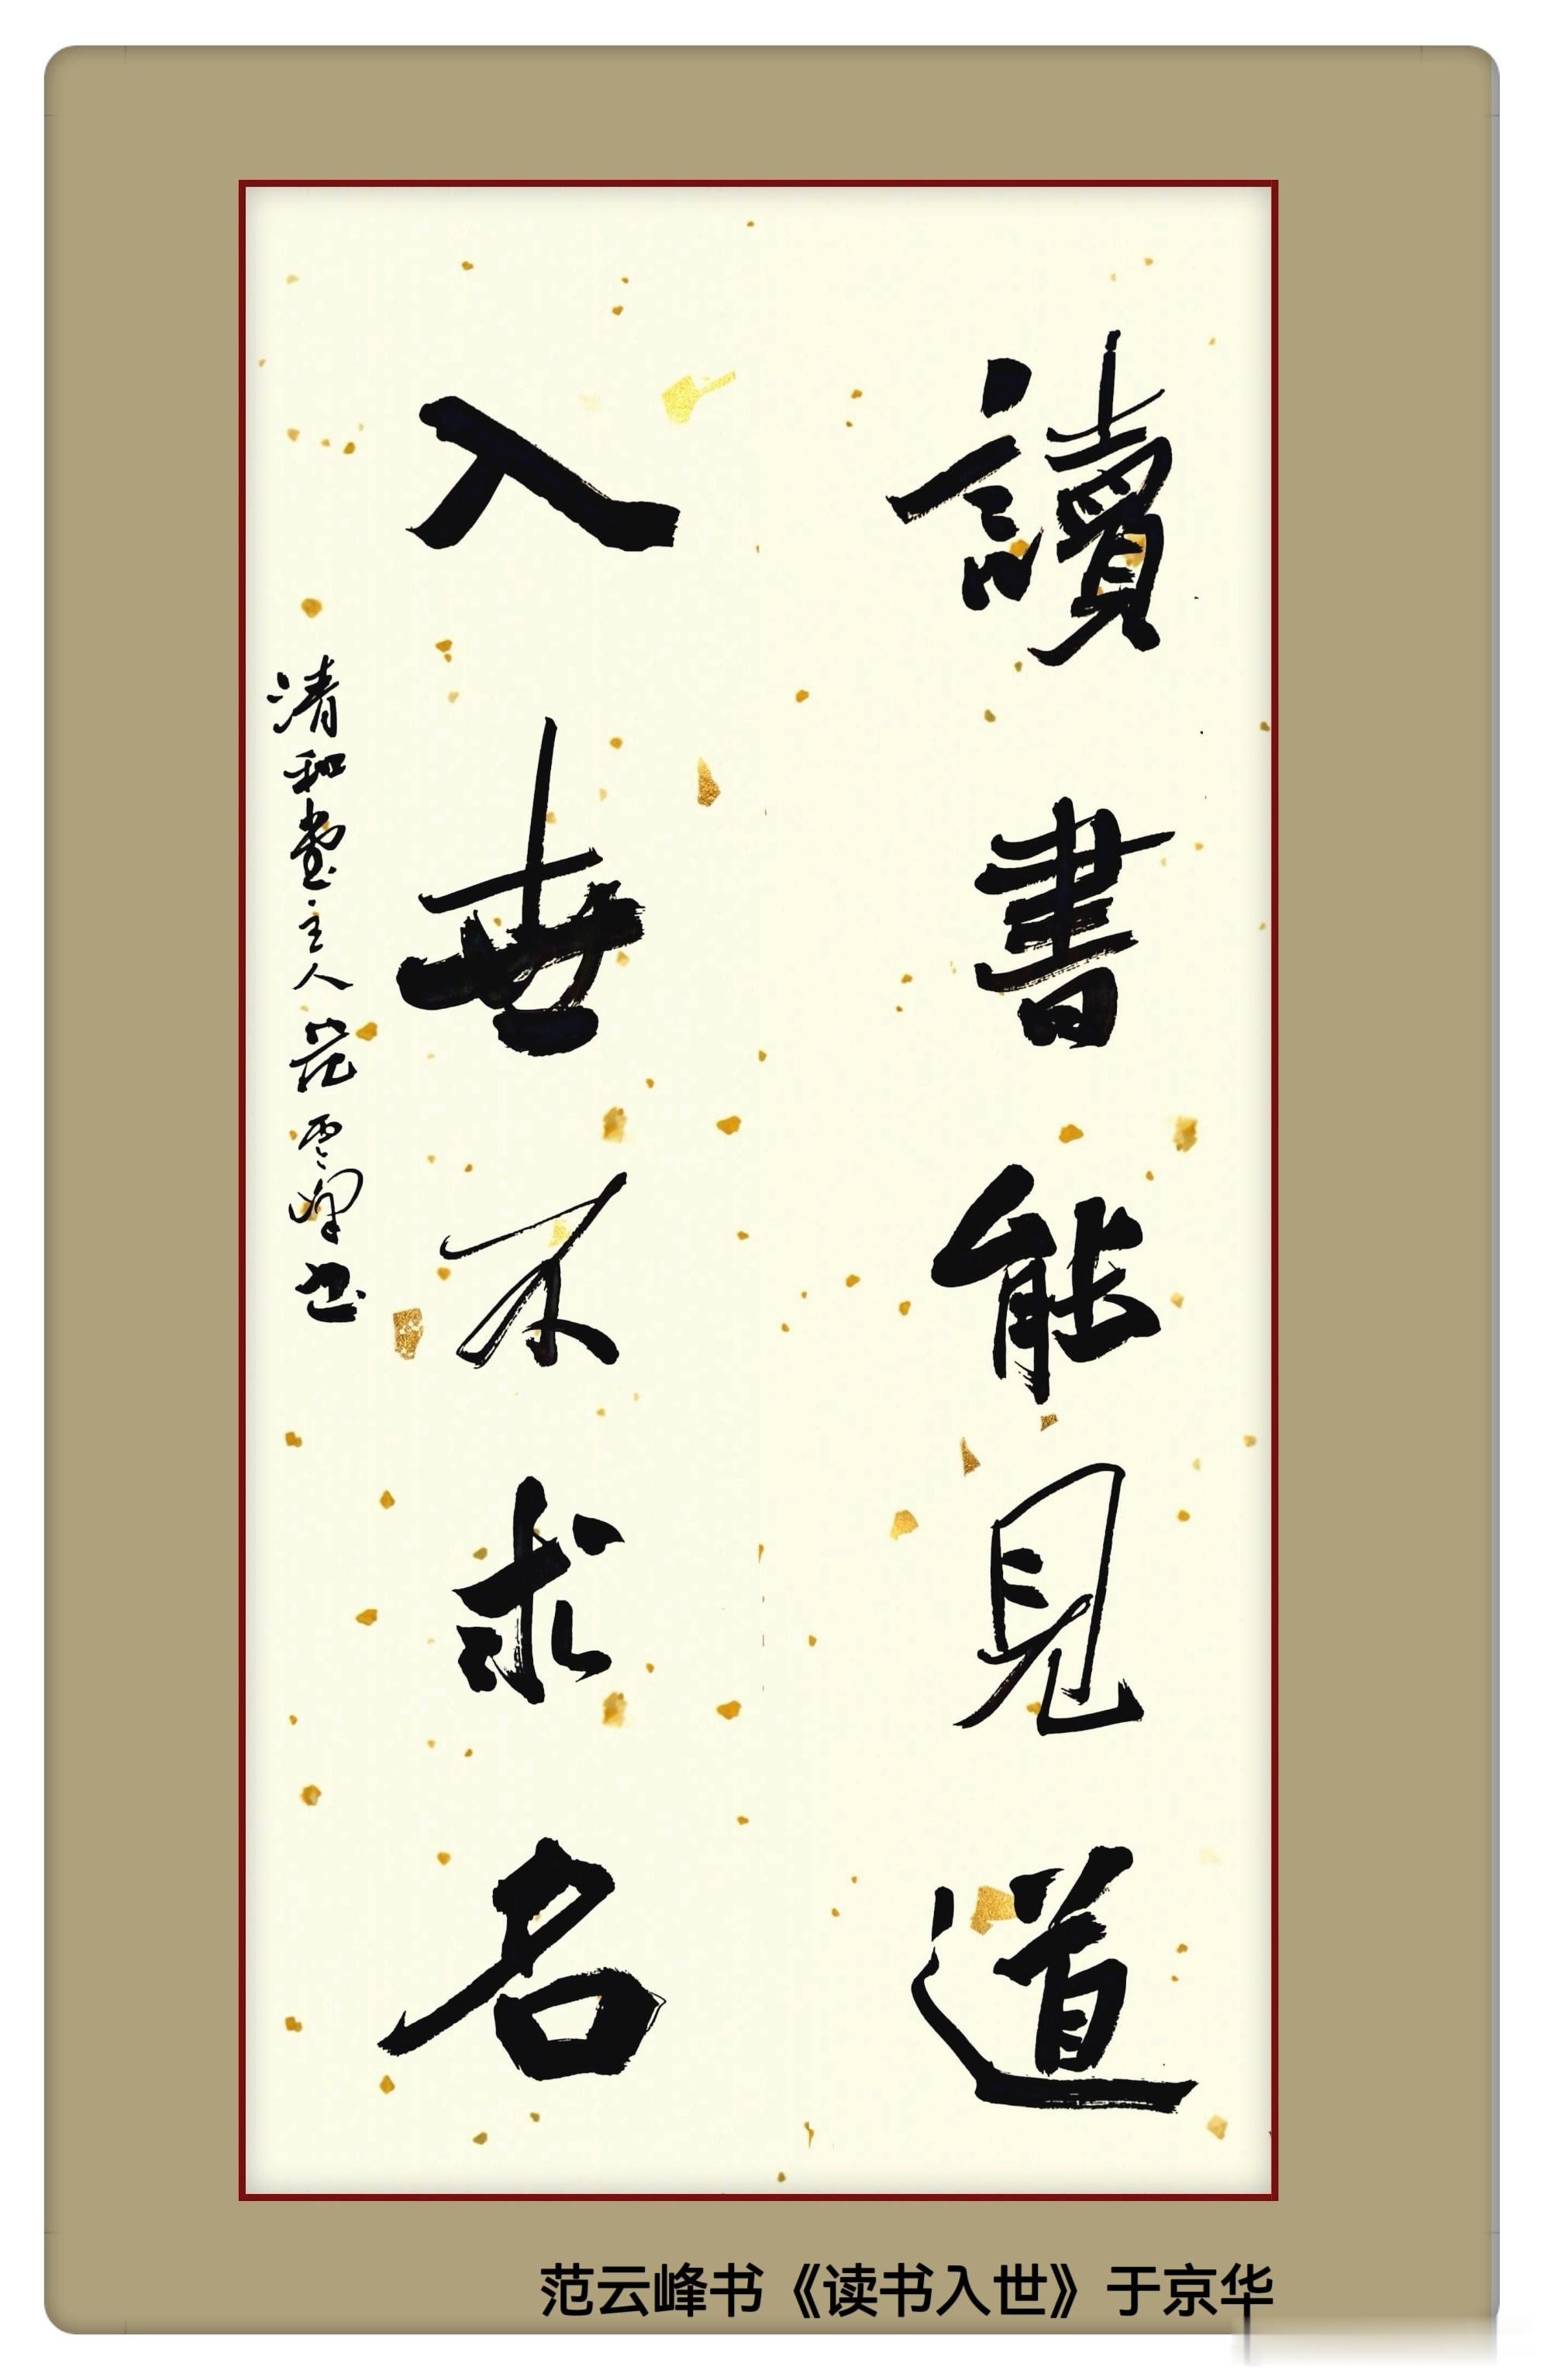 讀書能見道
入世不求名
清和堂主人范雲峰书
范云峰书《读书入世》于京华